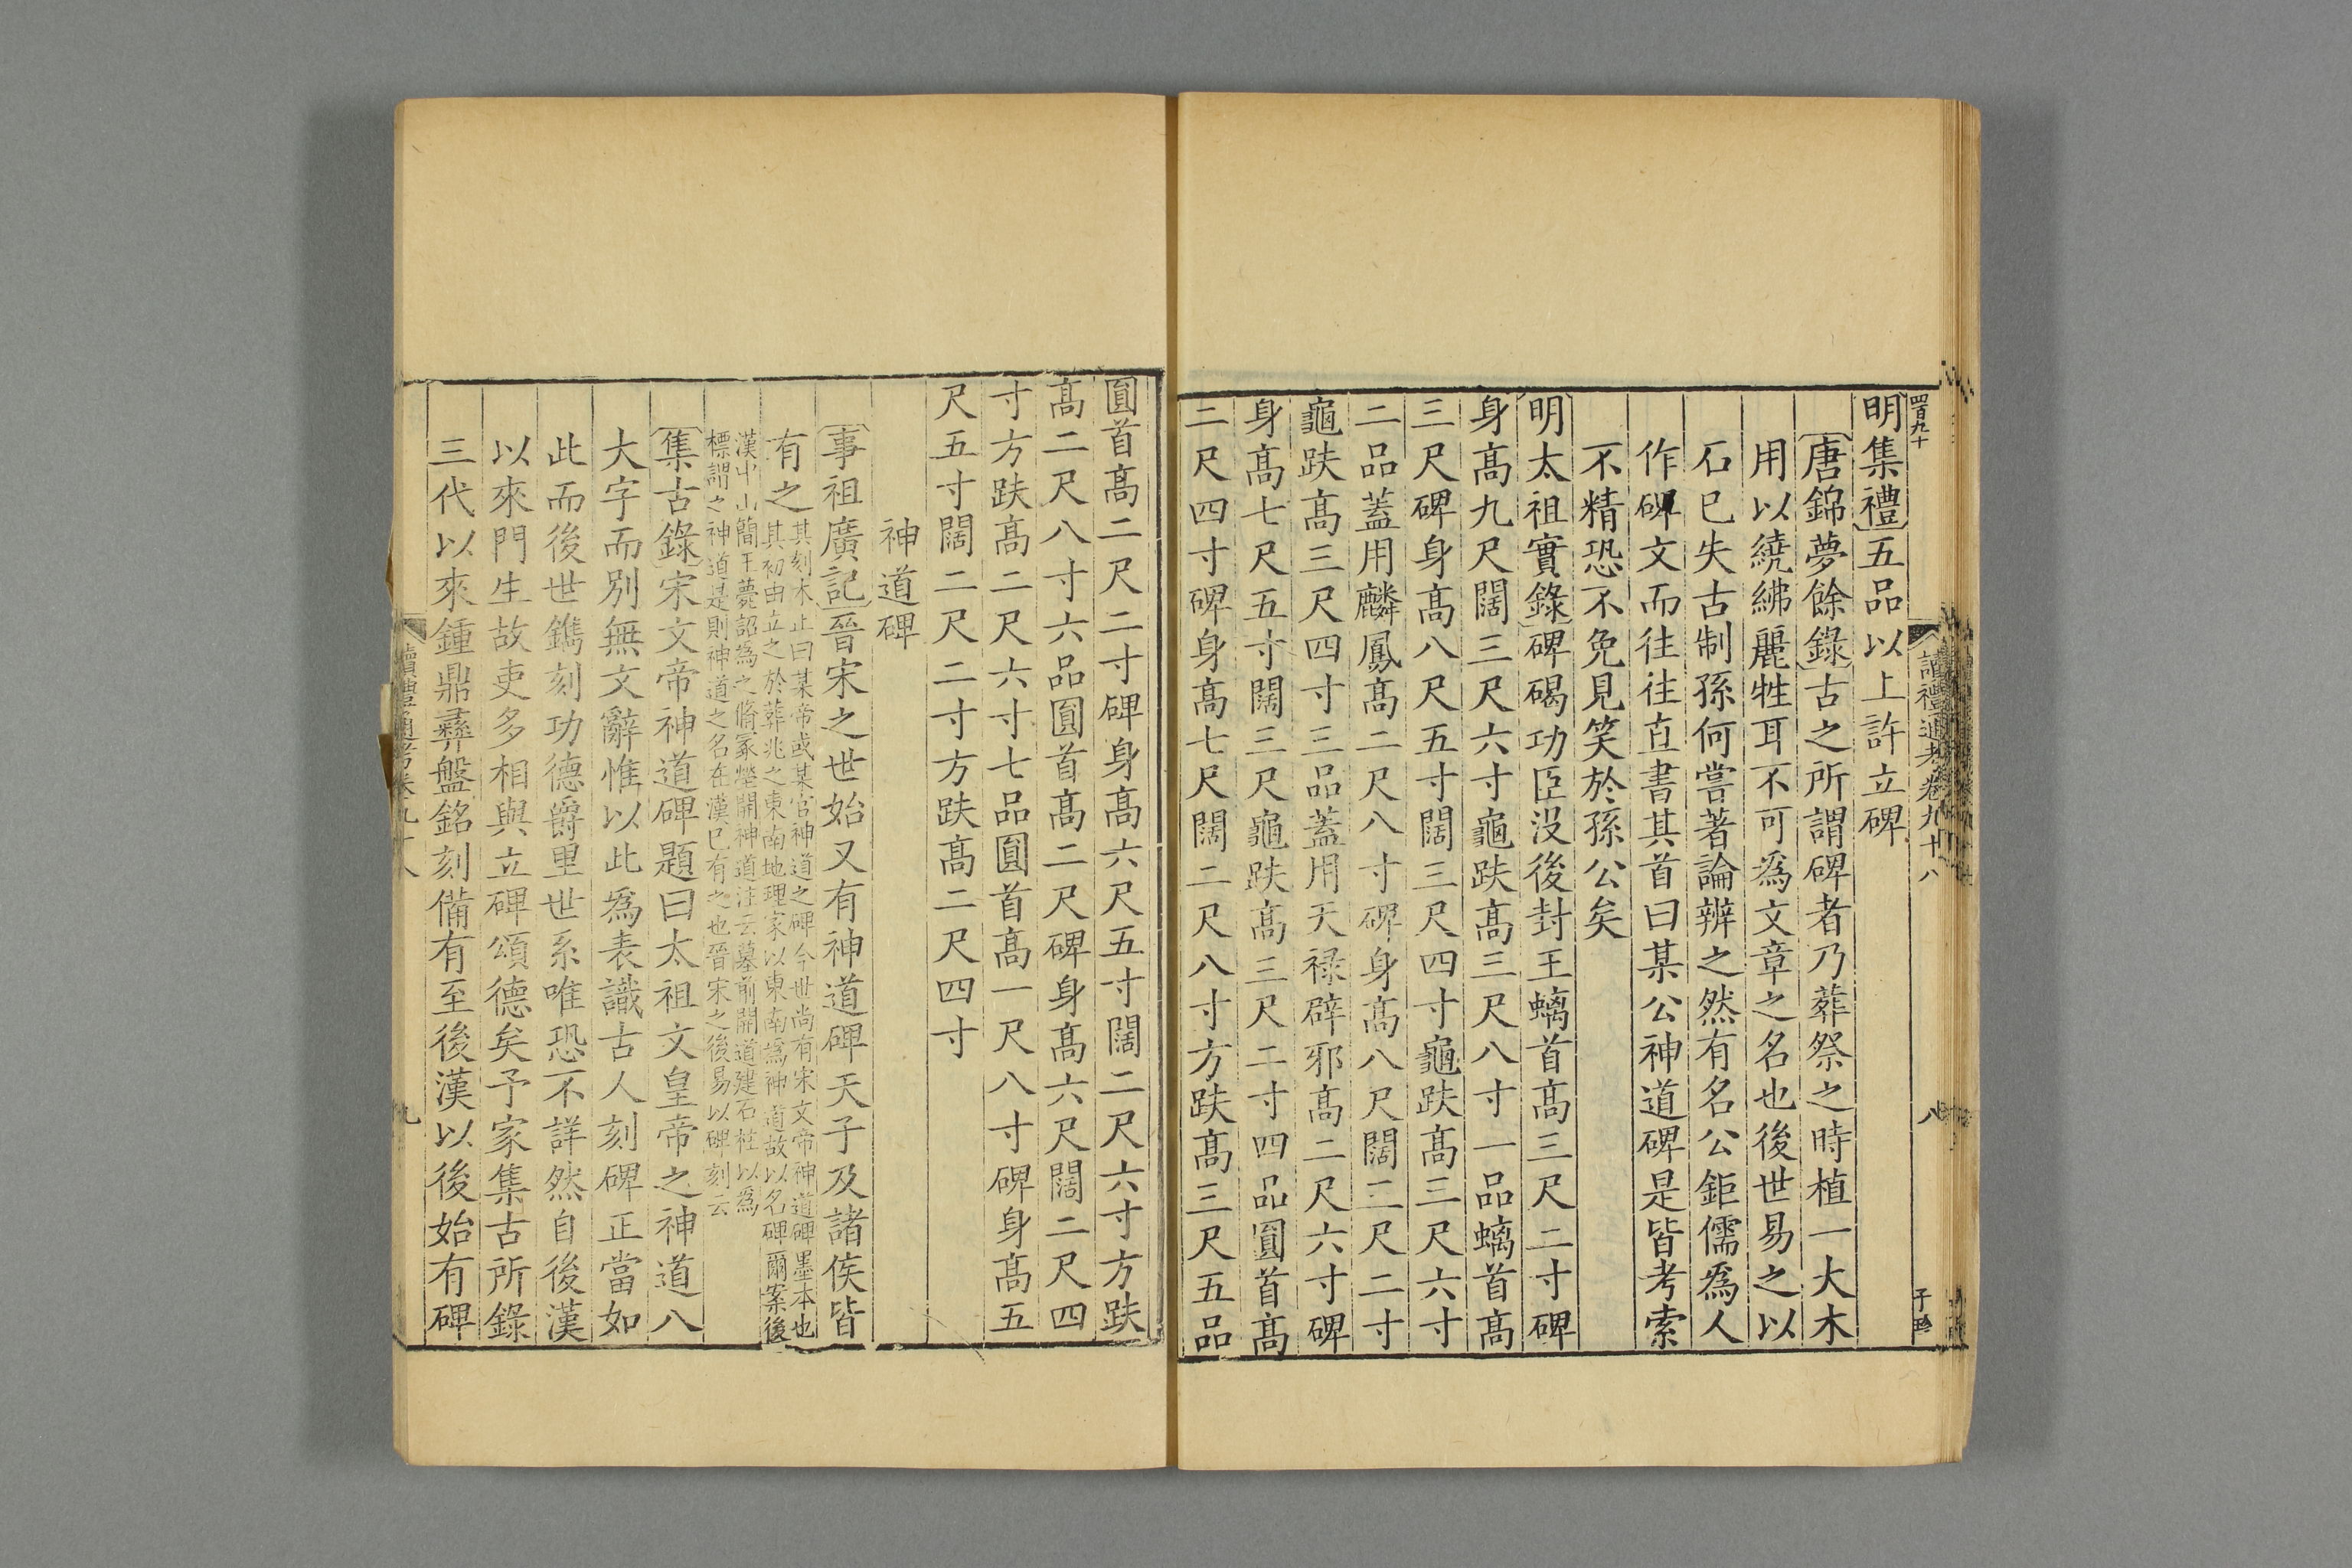 四百九十
讀禮通考卷九十八
八
明集禮五品以上許立碑
唐錦夢餘錄古之所謂碑者乃葬祭之時植一大木
用以繞紼麗牲耳不可爲文章之名也後世易之以
石已失古制孫何嘗著論辨之然有名公鉅儒爲人
作碑文而往往直書其首曰某公神道碑是皆考索
不精恐不免見笑於孫公矣
明太祖實錄碑碣功臣沒後封王螭首高三尺二寸碑
身高九尺闊三尺六寸龜趺高三尺八寸一品螭首高
三尺碑身高八尺五寸闊三尺四寸龜趺高三尺六寸
二品蓋用麟鳳高二尺八寸碑身高八尺闊三尺二寸
龜趺高三尺四寸三品蓋用天禄辟邪高二尺六寸碑
身高七尺五寸闊三尺龜趺高三尺二寸四品圓首高
二尺四寸碑身高七尺闊二尺八寸方趺高三尺五品
圓首高二尺二寸碑身高六尺五寸闊二尺六寸方趺
高二尺八寸六品圓首高二尺碑身高六尺闊二尺四
寸方趺高二尺六寸七品圓首高一尺八寸碑身高五
尺五寸闊二尺二寸方趺高二尺四寸
神道碑
事祖廣記晉宋之世始又有神道碑天子及諸侯皆
有之
其刻木止曰某帝或某官神道之碑今世尚有宋文帝神道碑墨本也
其初由立之於葬兆之東南地理家以東南爲神道故以名碑爾案後
漢中山簡王薨詔爲之脩冢塋開神道注云墓前開道建石柱以爲
標謂之神道是則神道之名在漢已有之也晉宋之後易以碑刻云
集古錄宋文帝神道碑題曰太祖文皇帝之神道八
大字而別無文辭惟以此爲表識古人刻碑正當如
此而後世鐫刻功德爵里世系唯恐不詳然自後漢
以來門生故吏多相與立碑頌德矣予家集古所錄
三代以來鍾鼎彝盤銘刻備有至後漢以後始有碑
讀禮通考卷九十八
九